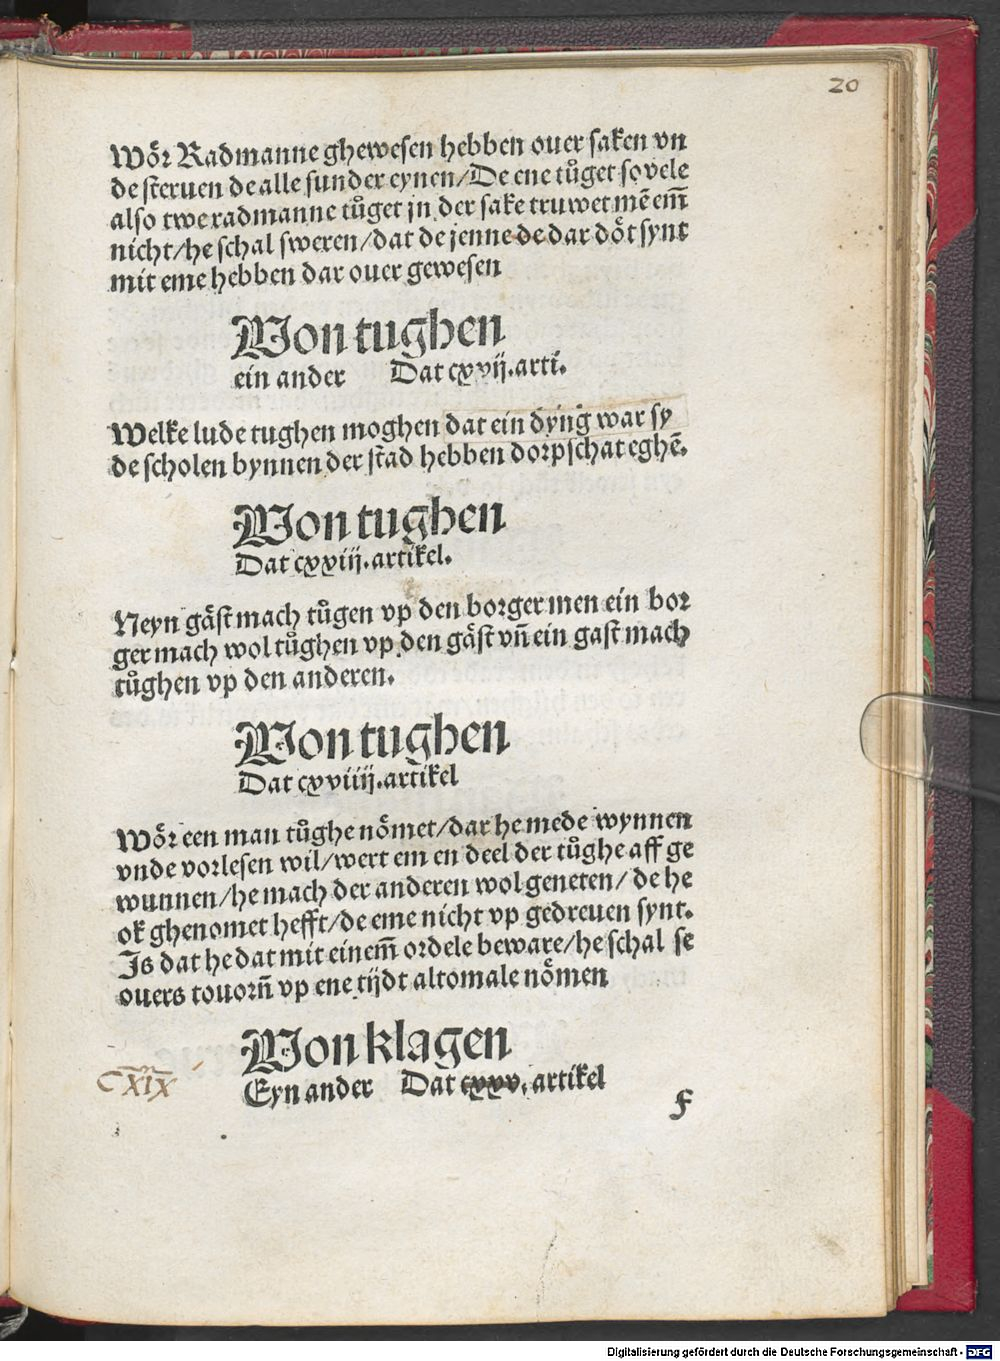 20
Wöꝛ Radmanne ghewesen hebben ouer saken vn
de steruen de alle sunder eynen/De ene tůget so vele
also twe radmanne tůget jn der sake truwet mē em̄
nicht/he schal sweren/dat de jenne de dar döt synt
mit eme hebben dar ouer gewesen
Von tughen
ein ander Dat cxvij.arti.
Welke lude tughen moghen dat ein dyng war sy
de scholen bynnen der stad hebben dorpschat eghē.
Von tughen
Dat cxviij.artikel.
Neyn gäst mach tůgen vp den borger men ein bor
ger mach wol tůghen vp den gäst vn̄ ein gast mach
tůghen vp den anderen.
Von tughen
Dat cxviiij.artikel
Wöꝛ een man tůghe nömet/dar he mede wynnen
vnde vorlesen wil/wert em en deel der tůghe aff ge
wunnen/he mach der anderen wol geneten/ de he
ok ghenomet hefft/de eme nicht vp gedreuen synt.
Is dat he dat mit einem̄ ordele beware/he schal se
ouers touorn̄ vp ene tijdt altomale nömen
Von klagen
CXIX
Eyn ander Dat cxxv. artikel
F
Digitalisierung gefördert durch die Deutsche Forschungsgemeinschaft - DFG